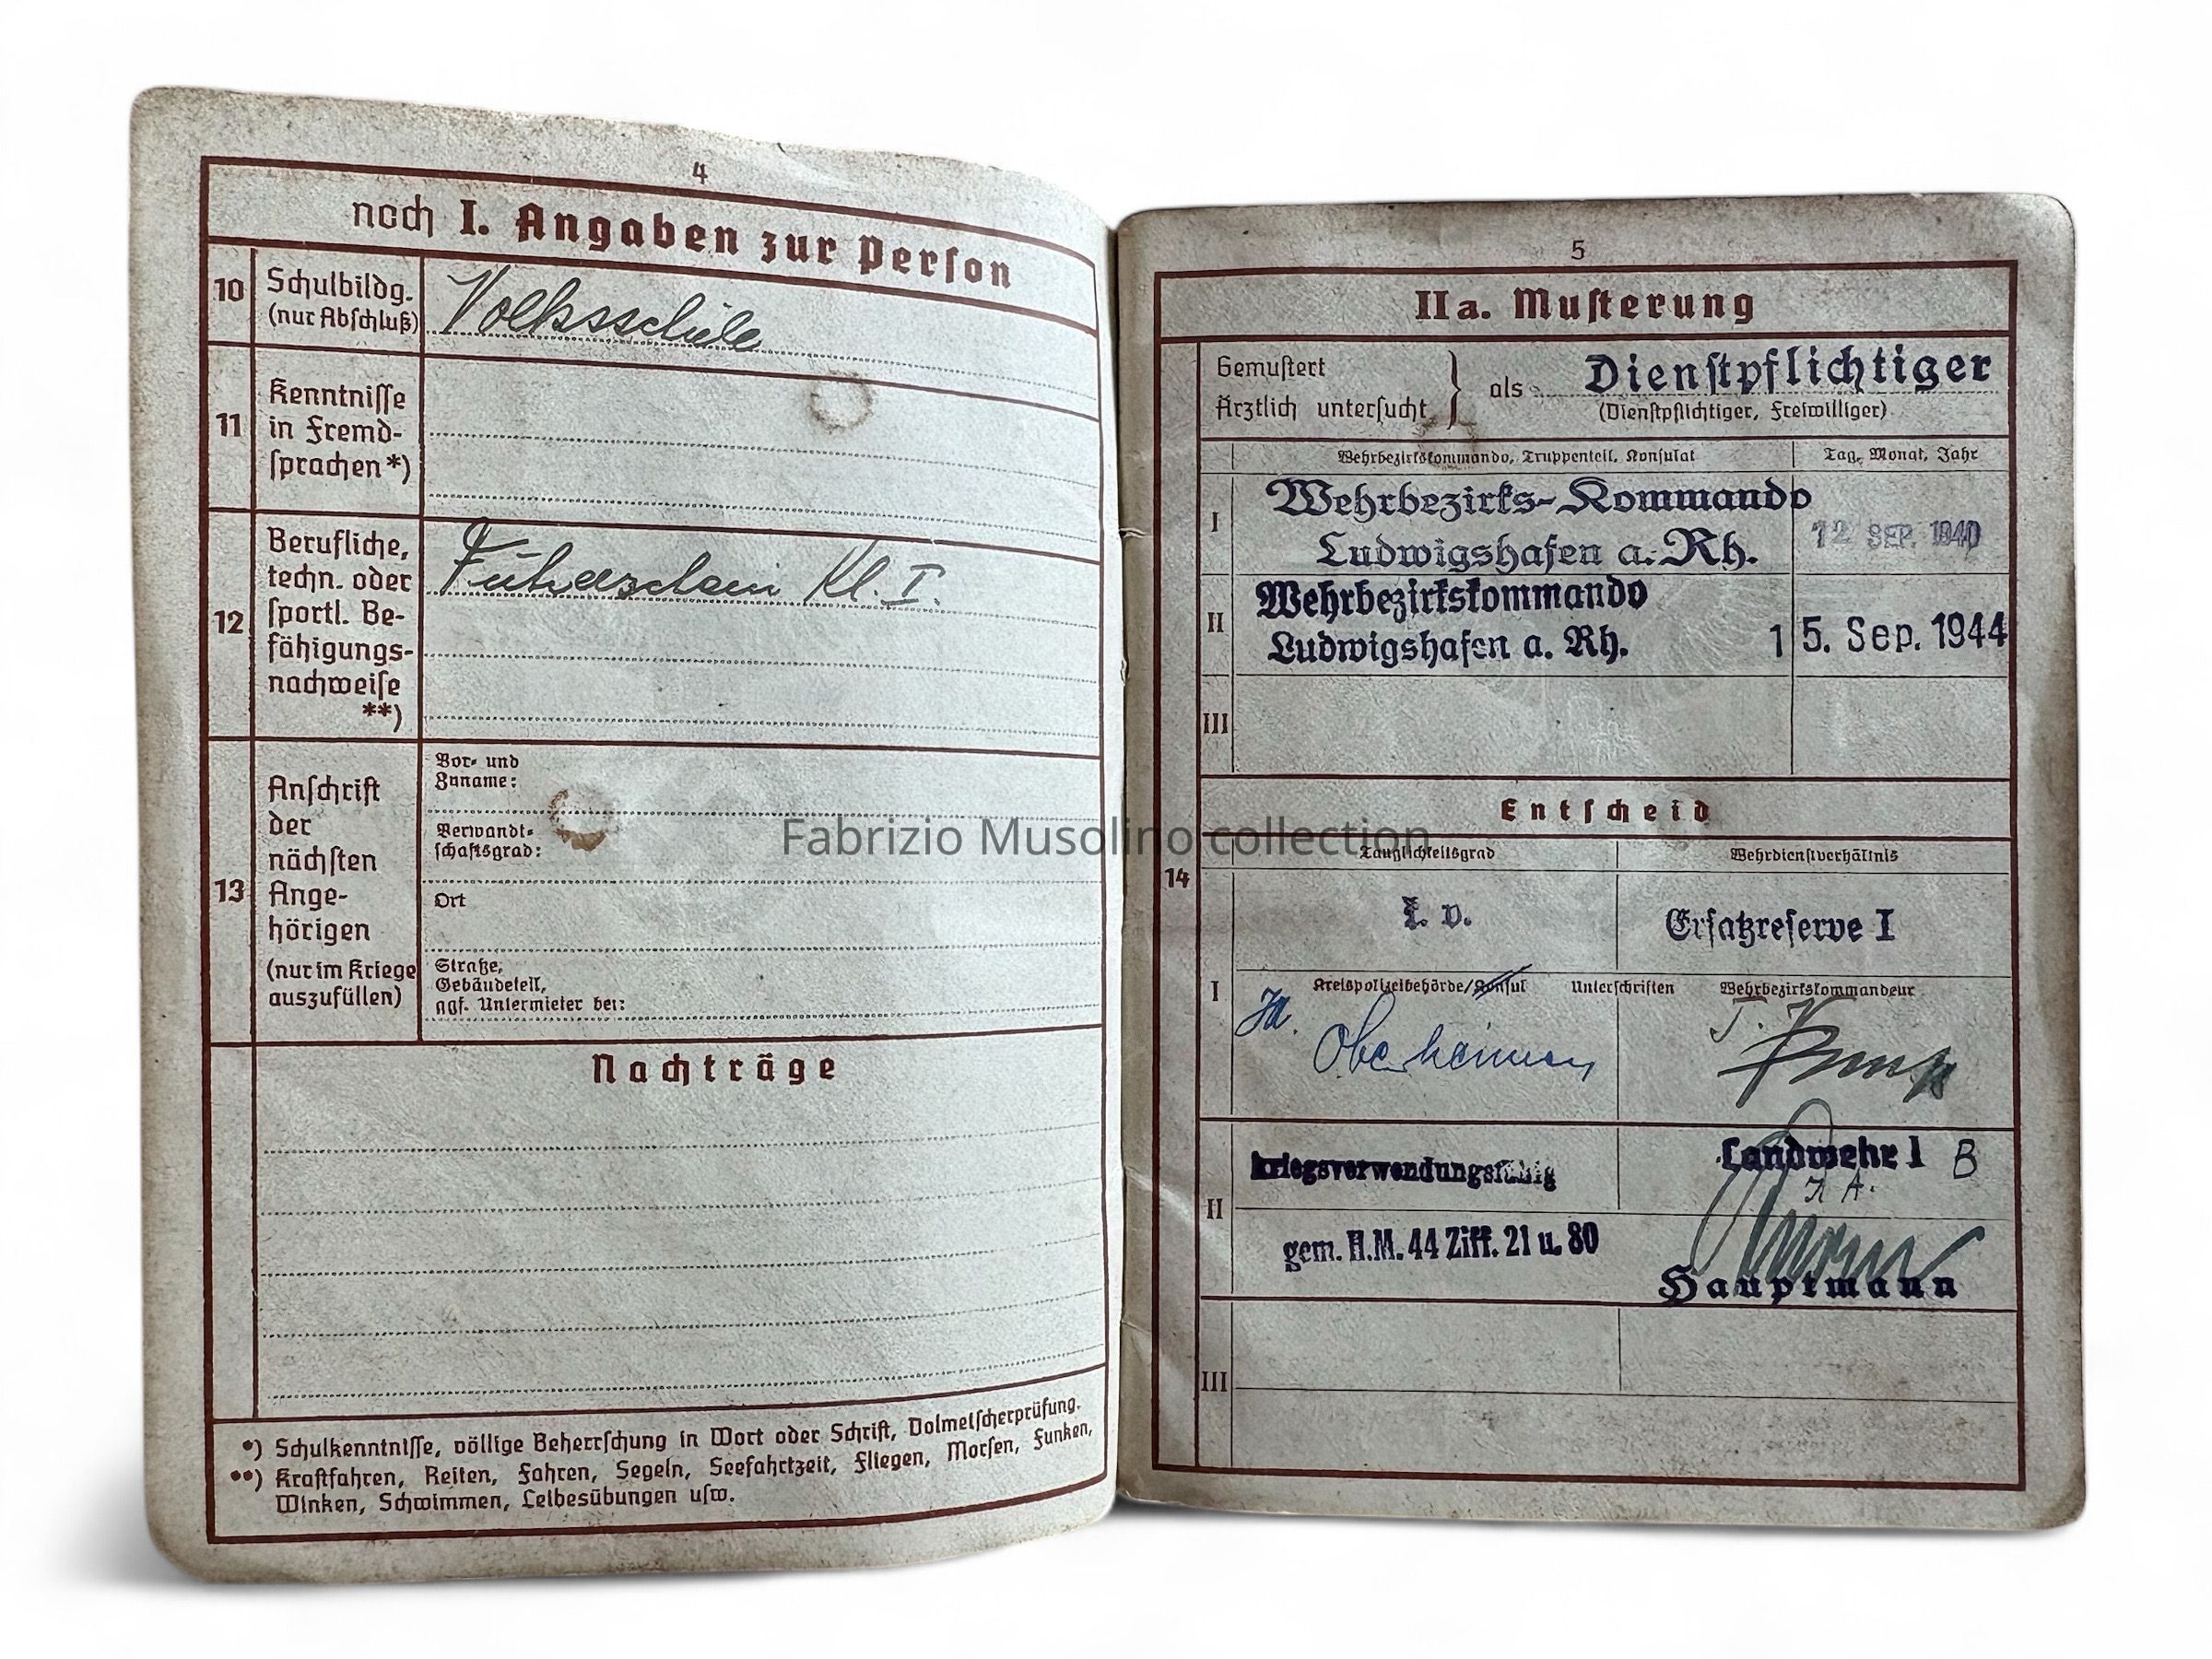 4
noch I. Angaben zur Person
10
Schulbildg.
(nur Abschluß)
Volksschule
11
Kenntnisse
in Fremd-
sprachen *)
12
Berufliche,
techn. oder
sportl. Be-
fähigungs-
nachweise
**)
Führerschein Kl. I.
13
Anschrift
der
nächsten
Ange-
hörigen
(nur im Kriege
auszufüllen)
Vor- und
Zuname:
Verwandt-
schaftsgrad:
Ort
Straße,
Gebäudeteil,
ggf. Untermieter bei:
Nachträge
*) Schulkenntnisse, völlige Beherrschung in Wort oder Schrift, Dolmetscherprüfung.
**) Kraftfahren, Reiten, Fahren, Segeln, Seefahrtzeit, Fliegen, Morsen, Funken,
Winken, Schwimmen, Leibesübungen usw.
5
IIa. Musterung
Gemustert
Ärztlich untersucht
als Dienstpflichtiger
(Dienstpflichtiger, Freiwilliger)
Wehrbezirkskommando, Truppenteil, Konsulat
Tag, Monat, Jahr
I
Wehrbezirks-Kommando
Ludwigshafen a. Rh.
12 SEP. 1940
II
Wehrbezirkskommando
Ludwigshafen a. Rh.
15. Sep. 1944
III
Entscheid
14
Tauglichkeitsgrad
Wehrdienstverhältnis
I
k. v.
Ersatzreserve I
Kreispolizeibehörde/Konsul
Unterschriften
Wehrbezirkskommandeur
II
kriegsverwendungsfähig
Landwehr I B
gem. H.M. 44 Ziff. 21 u. 80
Hauptmann
III
Fabrizio Musolino collection